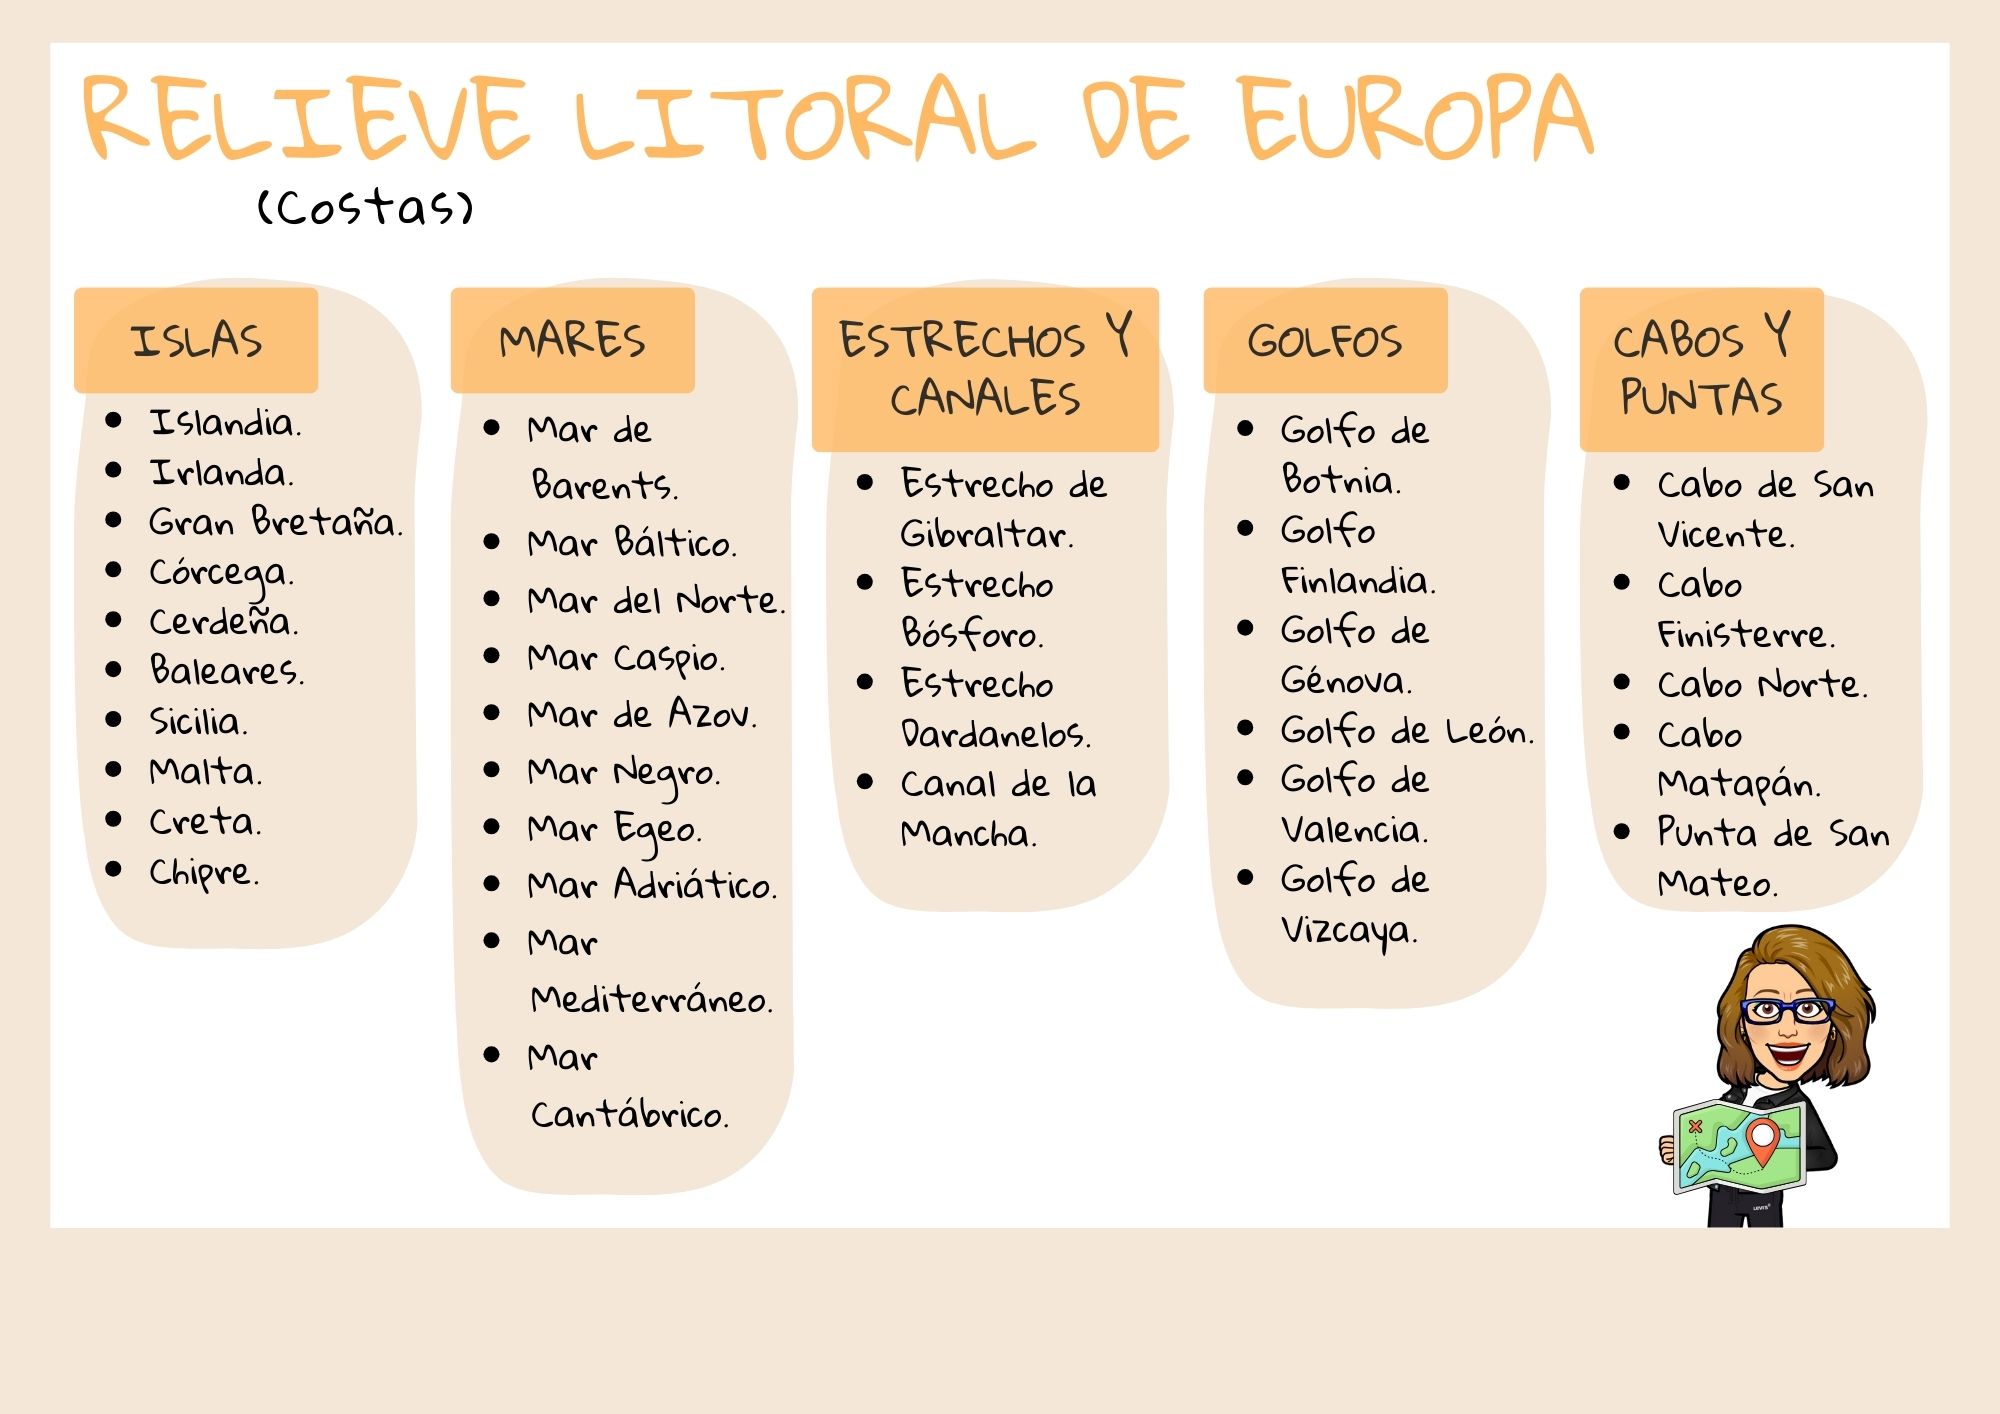 RELIEVE LITORAL DE EUROPA
(Costas)
ISLAS
Islandia.
Irlanda.
Gran Bretaña.
Córcega.
Cerdeña.
Baleares.
Sicilia.
Malta.
Creta.
Chipre.
MARES
Mar de
Barents.
Mar Báltico.
Mar del Norte.
Mar Caspio.
Mar de Azov.
Mar Negro.
Mar Egeo.
Mar Adriático.
Mar
Mediterráneo.
Mar
Cantábrico.
ESTRECHOS Y
CANALES
Estrecho de
Gibraltar.
Estrecho
Bósforo.
Estrecho
Dardanelos.
Canal de la
Mancha.
GOLFOS
Golfo de
Botnia.
Golfo
Finlandia.
Golfo de
Génova.
Golfo de León.
Golfo de
Valencia.
Golfo de
Vizcaya.
CABOS Y
PUNTAS
Cabo de San
Vicente.
Cabo
Finisterre.
Cabo Norte.
Cabo
Matapán.
Punta de San
Mateo.
LEVI'S